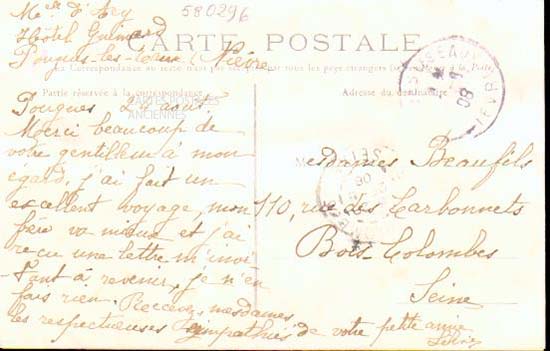 Melle d'Ary
580296
Hôtel Guimard
Pougues-les-Eaux (Nièvre
CARTE POSTALE
La Correspondance au recto n'est pas acceptée par tous les pays étrangers (Se renseigner à la Poste)
Partie réservée à la correspondance
Adresse du destinataire
CARTES POSTALES
ANCIENNES
Pougues 24 août
Merci beaucoup de
votre gentillesse à mon
égard, j'ai fait un
excellent voyage, mon
frère va mieux et j'ai
reçu une lettre m'invi
-tant à revenir, je n'en
fais rien. Recevez mesdames
les respectueuses sympathies de votre petite amie
Mesdames Beaufils
110, rue des Carbonnets
Bois-Colombes
Seine